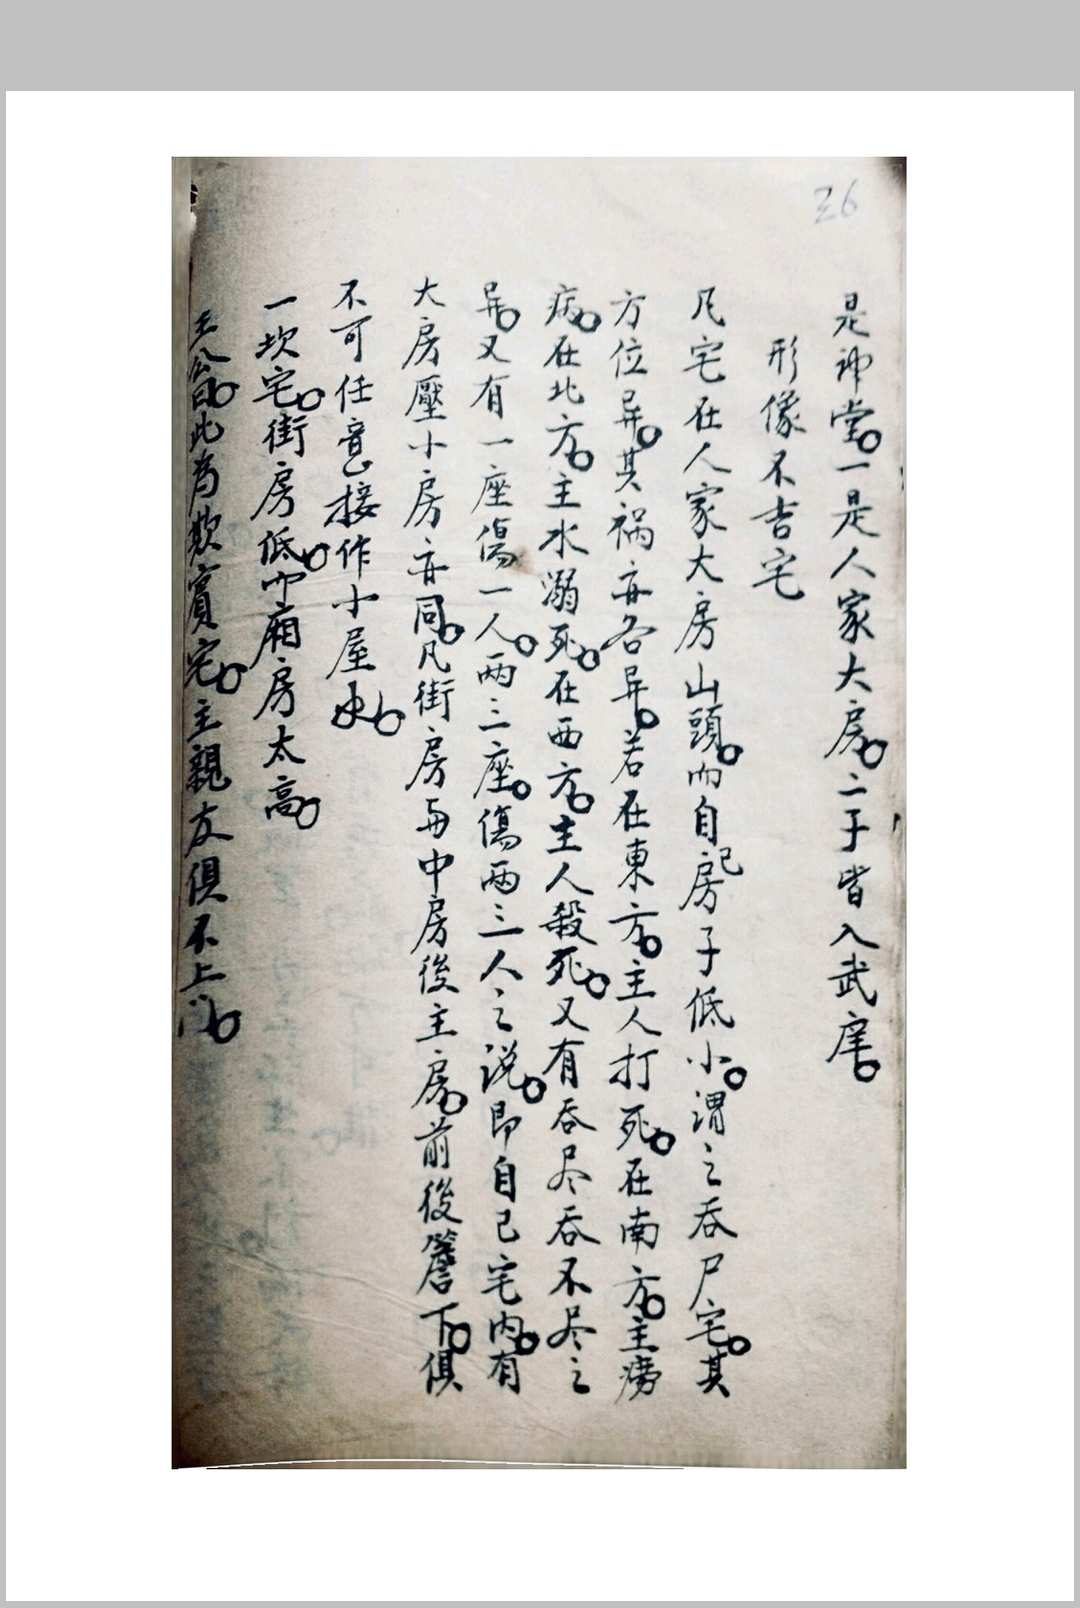 36
是神堂。一是人家大房。二子皆入武庠。
形像不吉宅
凡宅在人家大房山頭。而自己房子低小。謂之吞尸宅。其
方位异。其禍亦各异。若在東方。主人打死。在南方。主癆
病。在北方。主水溺死。在西方。主人殺死。又有吞尽吞不尽之
异。又有一座傷一人。兩三座。傷兩三人之说。即自己宅内。有
大房壓小房亦同。凡街房與中房後主房。前後簷下。俱
不可任意接作小屋。
一坎宅。街房低。而廂房太高。
王公曰。此为欺賓宅。主親友俱不上门。